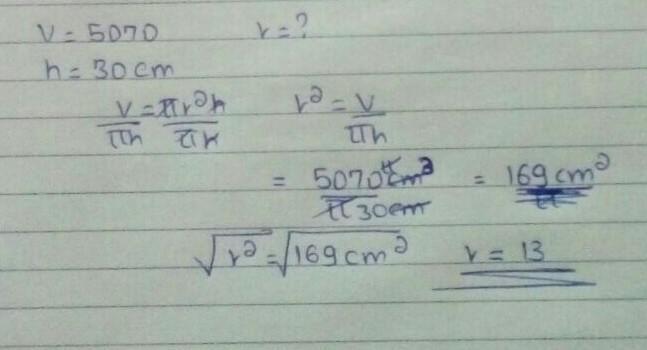 V = 5070 r = ?
h = 30 cm
V/πh = πr²h/πh r² = V/πh
= 5070π cm³/π30cm = 169 cm²
√r² = √169 cm² r = 13